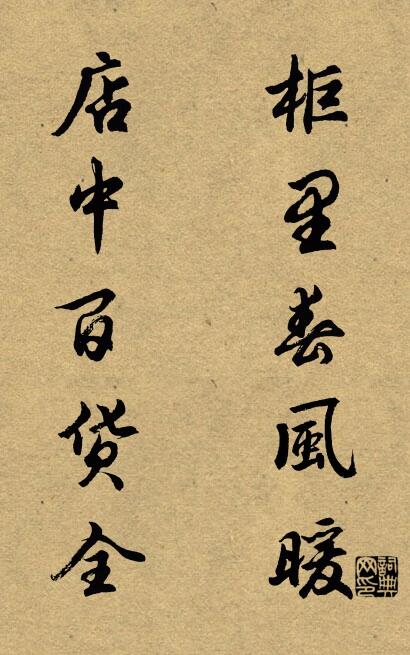 柜里春風暖
店中百货全
詞典网印